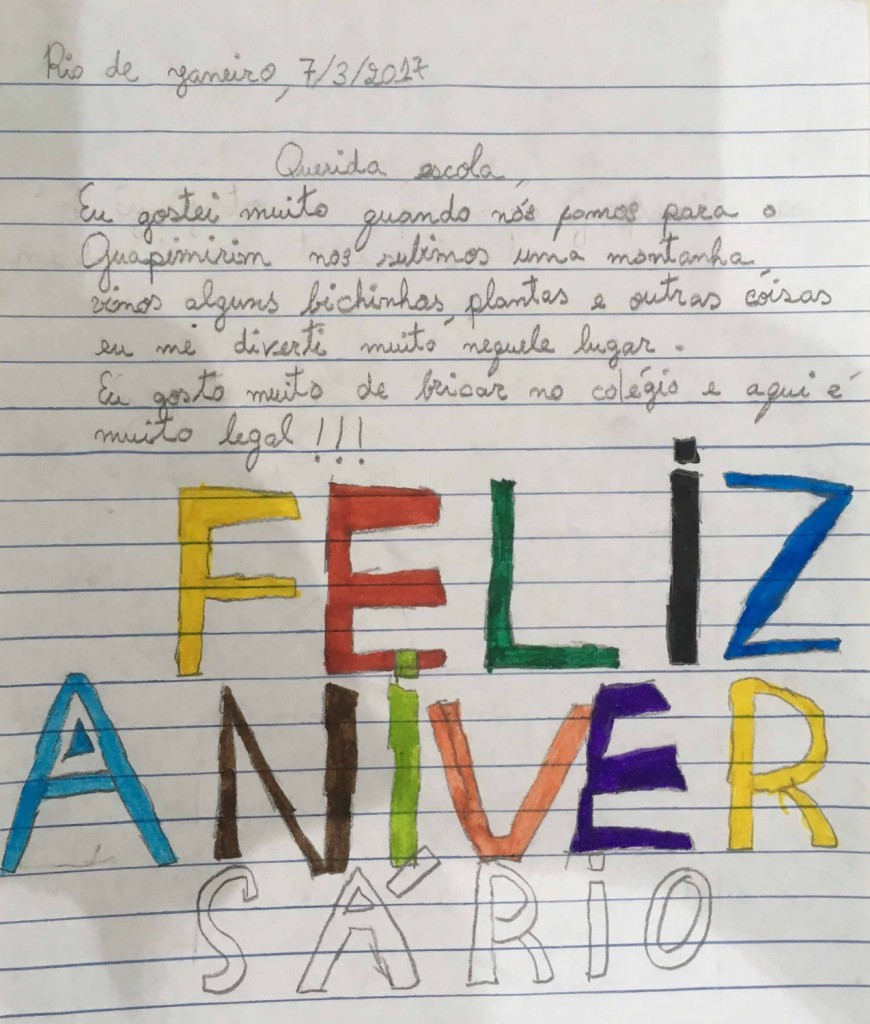 Rio de janeiro, 7/3/2017
Querida escola,
Eu gostei muito quando nós fomos para o
Guapimirim nos subimos uma montanha,
vimos alguns bichinhos, plantas e outras cóisas
eu me diverti muito nequele lugar.
Eu gosto muito de bricar no colégio e aqui é
muito legal !!!
FELIZ
ANIVER
SÁRIO